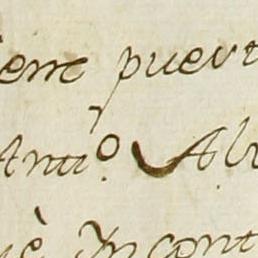 iene puert
Antt.º Alv
uè Incont